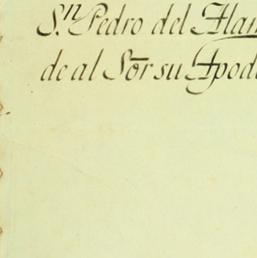 S.n Pedro del Alam
de al Sõr su Apode